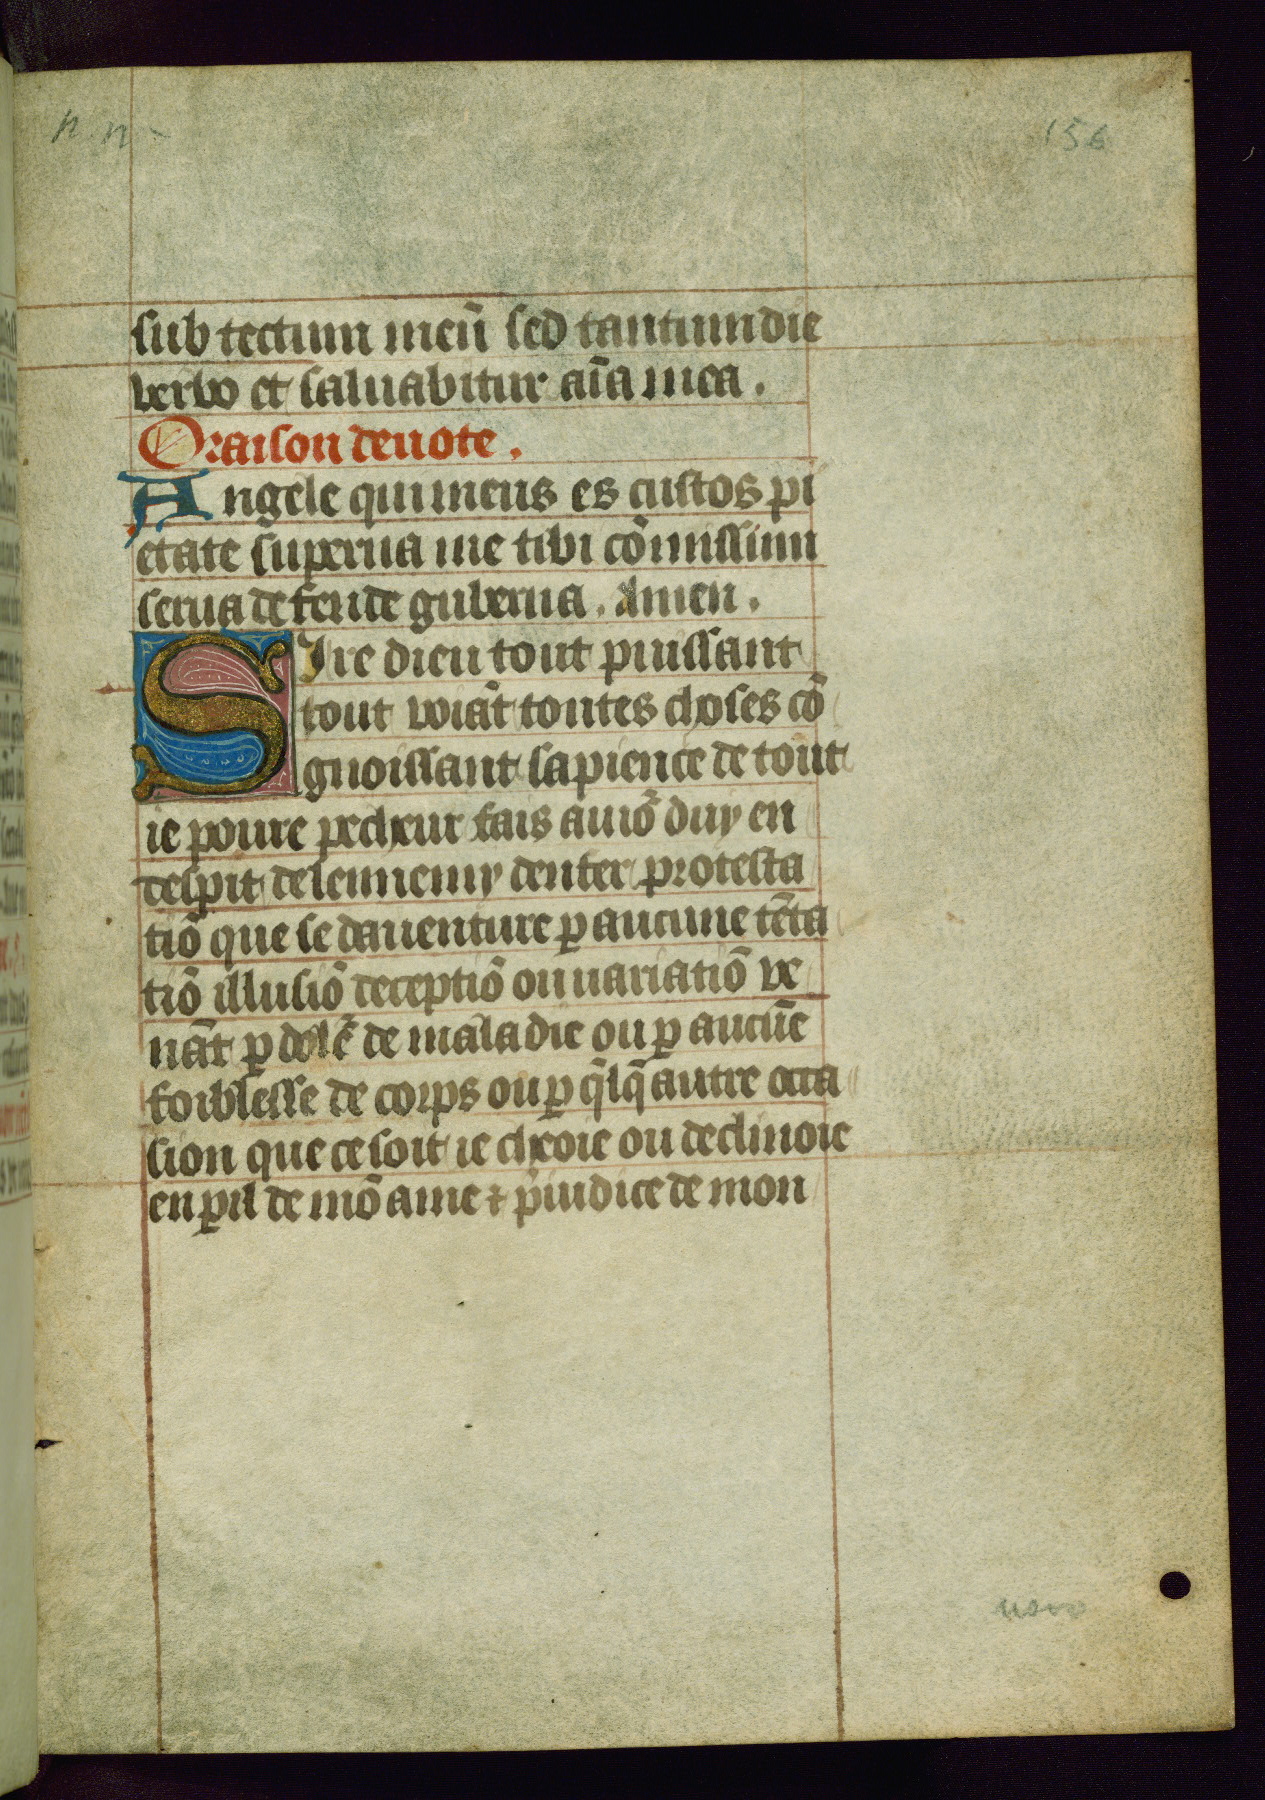 n. n-
156
sub tectum meū sed tantum die
verbo et saluabitur aīa mea.
Oraison deuote.
Angele qui meus es custos pi
etate superna me tibi cōmissum
serua defende guberna. Amen.
Sire dieu tout puissant
tout voiāt toutes choses cō
gnoissant sapience de tout
ie poure pecheur fais auiō duy en
despit de lennemy denfer protesta
tiō que se dauenture p̱ aucune tēta
tiō illusiō deceptiō ou uariatiō ve
nāt p̱ dol᷑ de maladie ou p̱ aucūe
foiblesse de corps ou p̱ q̄lq̄ autre occa
sion que ce soit ie cheoie ou declinoie
en p̱il de mō ame ⁊ p̄iudice de mon